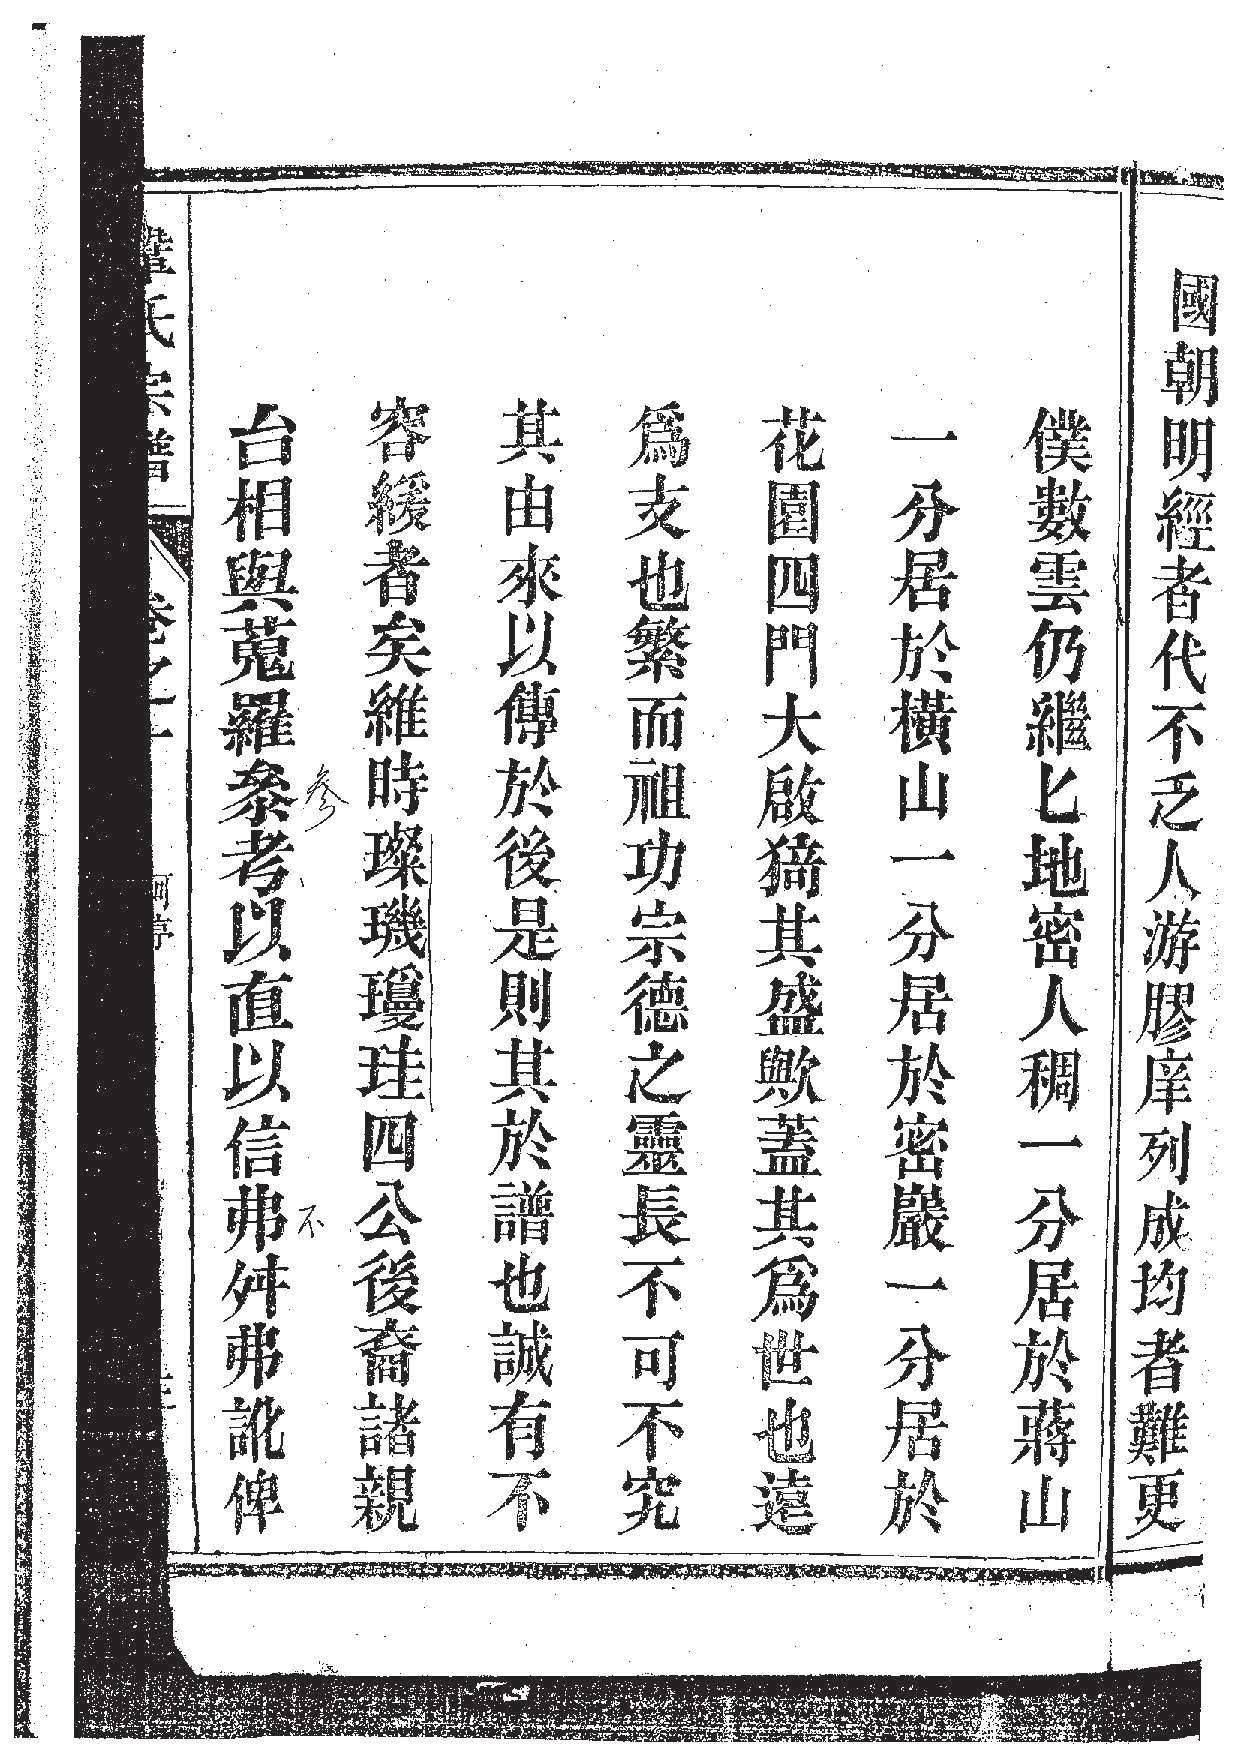 國朝明經者代不乏人游膠庠列成均者難更
僕數雲仍繼匕地密人稠一分居於蔣山
一分居於橫山一分居於密巖一分居於
花園四門大啟猗其盛歟蓋其爲世也遠
爲支也繁而祖功宗德之靈長不可不究
其由來以傳於後是則其於譜也誠有不
容緩者矣維時璨璣瓊珪四公後裔諸親
台相與蒐羅叅考以直以信弗舛弗訛俾
參
不
氏宗譜